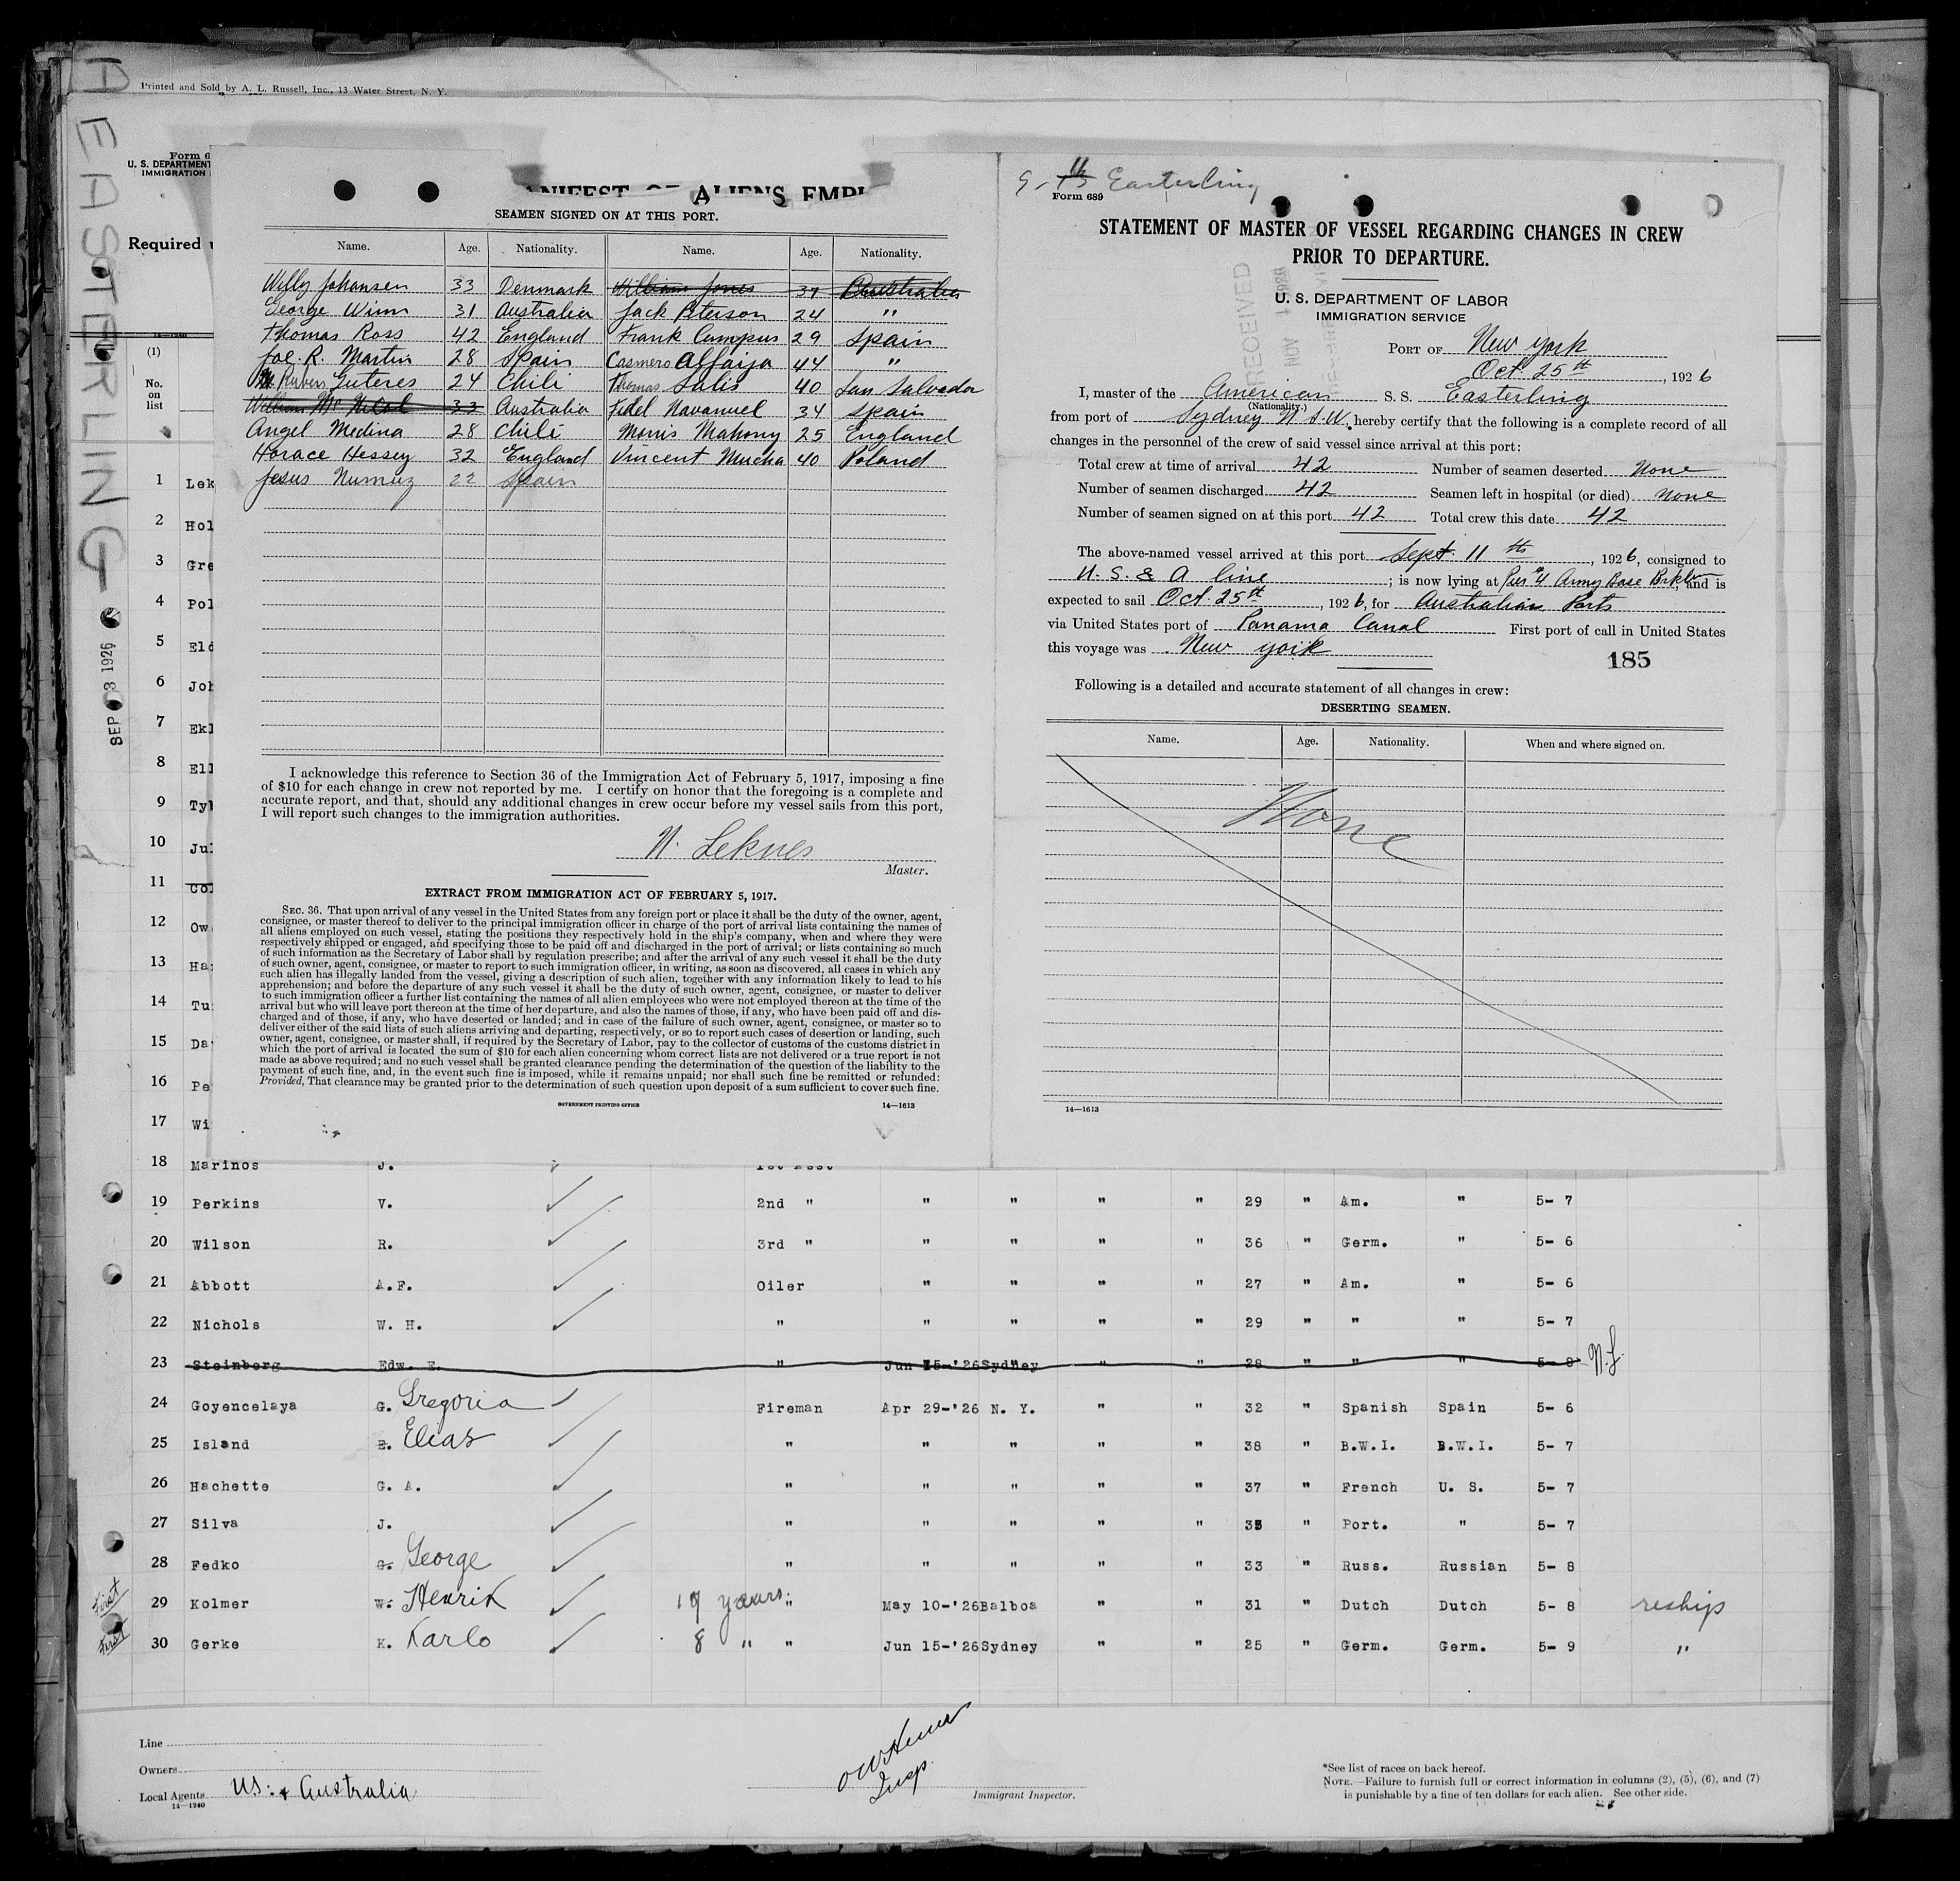 Printed and Sold by A. L. Russell, Inc., 13 Water Street, N. Y.
EASTERLING
SEP 3 1926
Form 6
U. S. DEPARTMENT
IMMIGRATION
Required
(1)
No.
on
list
1 Lek
2 Hol
3 Gre
4 Pol
5 Eld
6 Joh
7 Ekl
8 Ell
9 Tyl
10 Jul
11 Co
12 Ow
13 Ha
14 Tu
15 Da
16 Pe
17 Wi
ANIFEST OF ALIENS EMPL
SEAMEN SIGNED ON AT THIS PORT.
Name. Age. Nationality. Name. Age. Nationality.
Willy Johansen 33 Denmark William Jones 37 Australia
George Winn 31 Australia Jack Peterson 24 "
Thomas Ross 42 England Frank Campus 29 Spain
Joe. R. Martin 28 Spain Casmero Alfaija 44 "
Ruben Guteres 24 Chile Thomas Salis 40 San Salvador
William Mc Nicol 33 Australia Fidel Navanuel 34 Spain
Angel Medina 28 Chile Morris Mahony 25 England
Horace Hessey 32 England Vincent Mucha 40 Poland
Jesus Numuz 22 Spain
I acknowledge this reference to Section 36 of the Immigration Act of February 5, 1917, imposing a fine
of $10 for each change in crew not reported by me. I certify on honor that the foregoing is a complete and
accurate report, and that, should any additional changes in crew occur before my vessel sails from this port,
I will report such changes to the immigration authorities.
N. Leknes
Master.
EXTRACT FROM IMMIGRATION ACT OF FEBRUARY 5, 1917.
SEC. 36. That upon arrival of any vessel in the United States from any foreign port or place it shall be the duty of the owner, agent,
consignee, or master thereof to deliver to the principal immigration officer in charge of the port of arrival lists containing the names of
all aliens employed on such vessel, stating the positions they respectively hold in the ship's company, when and where they were
respectively shipped or engaged, and specifying those to be paid off and discharged in the port of arrival; or lists containing so much
of such information as the Secretary of Labor shall by regulation prescribe; and after the arrival of any such vessel it shall be the duty
of such owner, agent, consignee, or master to report to such immigration officer, in writing, as soon as discovered, all cases in which any
such alien has illegally landed from the vessel, giving a description of such alien, together with any information likely to lead to his
apprehension; and before the departure of any such vessel it shall be the duty of such owner, agent, consignee, or master to deliver
to such immigration officer a further list containing the names of all alien employees who were not employed thereon at the time of the
arrival but who will leave port thereon at the time of her departure, and also the names of those, if any, who have been paid off and dis-
charged and of those, if any, who have deserted or landed; and in case of the failure of such owner, agent, consignee, or master so to
deliver either of the said lists of such aliens arriving and departing, respectively, or so to report such cases of desertion or landing, such
owner, agent, consignee, or master shall, if required by the Secretary of Labor, pay to the collector of customs of the customs district in
which the port of arrival is located the sum of $10 for each alien concerning whom correct lists are not delivered or a true report is not
made as above required; and no such vessel shall be granted clearance pending the determination of the question of the liability to the
payment of such fine, and, in the event such fine is imposed, while it remains unpaid; nor shall such fine be remitted or refunded:
Provided, That clearance may be granted prior to the determination of such question upon deposit of a sum sufficient to cover such fine.
GOVERNMENT PRINTING OFFICE 14—1613
9- 11 Easterling
Form 689
STATEMENT OF MASTER OF VESSEL REGARDING CHANGES IN CREW
PRIOR TO DEPARTURE.
RECEIVED
NOV 1 1926
U. S. DEPARTMENT OF LABOR
IMMIGRATION SERVICE
PORT OF New York
Oct. 25th, 1926
I, master of the American S. S. Easterling
(Nationality.)
from port of Sydney N.S.W. hereby certify that the following is a complete record of all
changes in the personnel of the crew of said vessel since arrival at this port:
Total crew at time of arrival 42 Number of seamen deserted None
Number of seamen discharged 42 Seamen left in hospital (or died) None
Number of seamen signed on at this port 42 Total crew this date 42
The above-named vessel arrived at this port Sept. 11th, 1926, consigned to
U. S. & A line; is now lying at Pier #4 Army Base Bklyn, and is
expected to sail Oct. 25th, 1926, for Australian Ports
via United States port of Panama Canal First port of call in United States
this voyage was New York
185
Following is a detailed and accurate statement of all changes in crew:
DESERTING SEAMEN.
Name. Age. Nationality. When and where signed on.
None
14—1613
18 Marinos J. 1st Asst
19 Perkins V. 2nd " " " " " 29 " Am. " 5- 7
20 Wilson R. 3rd " " " " " 36 " Germ. " 5- 6
21 Abbott A.F. Oiler " " " " 27 " Am. " 5- 6
22 Nichols W. H. " " " " " 29 " " " 5- 7
23 Steinberg Edw. E. " Jun 15-'26 Sydney " " 28 " " " 5- 8 N.L.
24 Goyencelaya G. Gregoria Fireman Apr 29-'26 N. Y. " " 32 " Spanish Spain 5- 6
25 Island E. Elias " " " " " 38 " B.W.I. B.W.I. 5- 7
26 Hachette G. A. " " " " " 37 " French U. S. 5- 7
27 Silva J. " " " " " 35 " Port. " 5- 7
28 Fedko G. George " " " " " 33 " Russ. Russian 5- 8
First 29 Kolmer W. Henrik 17 years " May 10-'26 Balboa " " 31 " Dutch Dutch 5- 8 reships
First 30 Gerke K. Karlo 8 " " Jun 15-'26 Sydney " " 25 " Germ. Germ. 5- 9 "
Line
Owners
Local Agents US. & Australia
14—1240
Insp.
Immigrant Inspector.
*See list of races on back hereof.
NOTE.—Failure to furnish full or correct information in columns (2), (5), (6), and (7)
is punishable by a fine of ten dollars for each alien. See other side.